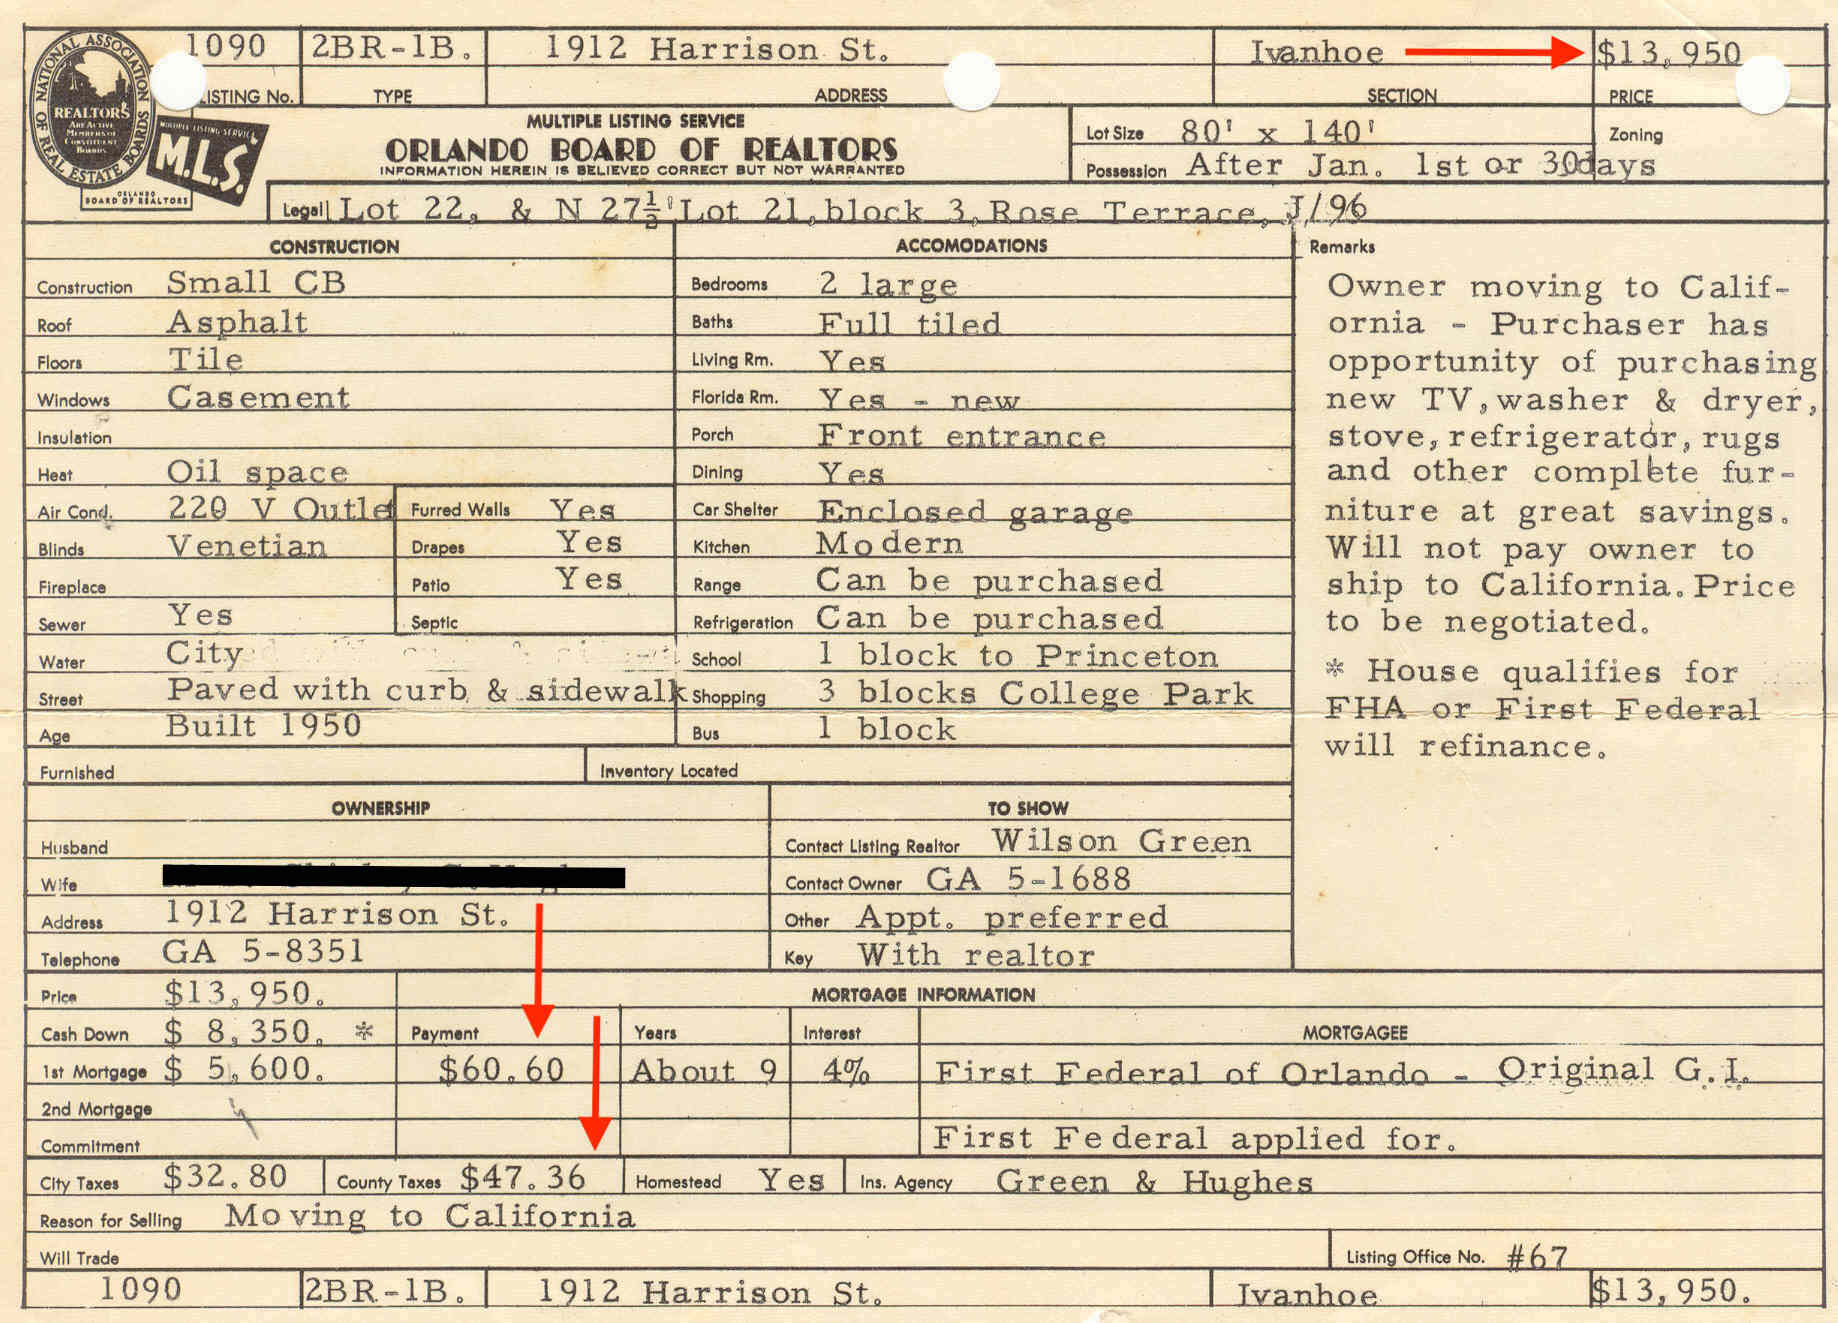 1090 2BR-1B. 1912 Harrison St. Ivanhoe $13,950
LISTING No. TYPE ADDRESS SECTION PRICE
NATIONAL ASSOCIATION OF REAL ESTATE BOARDS
REALTORS
ARE ACTIVE
MEMBERS OF
CONSTITUENT
BOARDS
MULTIPLE LISTING SERVICE
M.L.S.
ORLANDO
BOARD OF REALTORS
MULTIPLE LISTING SERVICE
ORLANDO BOARD OF REALTORS
INFORMATION HEREIN IS BELIEVED CORRECT BUT NOT WARRANTED
Lot Size 80' x 140' Zoning
Possession After Jan. 1st or 30days
Legal Lot 22, & N 27½' Lot 21,block 3,Rose Terrace, J/96
CONSTRUCTION
Construction Small CB
Roof Asphalt
Floors Tile
Windows Casement
Insulation
Heat Oil space
Air Cond. 220 V Outlet Furred Walls Yes
Blinds Venetian Drapes Yes
Fireplace Patio Yes
Sewer Yes Septic
Water City
Street Paved with curb & sidewalk
Age Built 1950
ACCOMODATIONS
Bedrooms 2 large
Baths Full tiled
Living Rm. Yes
Florida Rm. Yes - new
Porch Front entrance
Dining Yes
Car Shelter Enclosed garage
Kitchen Modern
Range Can be purchased
Refrigeration Can be purchased
School 1 block to Princeton
Shopping 3 blocks College Park
Bus 1 block
Remarks
Owner moving to Calif-
ornia - Purchaser has
opportunity of purchasing
new TV,washer & dryer,
stove,refrigerator,rugs
and other complete fur-
niture at great savings.
Will not pay owner to
ship to California.Price
to be negotiated.
* House qualifies for
FHA or First Federal
will refinance.
Furnished Inventory Located
OWNERSHIP
Husband
Wife
Address 1912 Harrison St.
Telephone GA 5-8351
TO SHOW
Contact Listing Realtor Wilson Green
Contact Owner GA 5-1688
Other Appt. preferred
Key With realtor
Price $13,950. MORTGAGE INFORMATION
Cash Down $ 8,350. * Payment Years Interest MORTGAGEE
1st Mortgage $ 5,600. $60.60 About 9 4% First Federal of Orlando - Original G.I.
2nd Mortgage
Commitment First Federal applied for.
City Taxes $32.80 County Taxes $47.36 Homestead Yes Ins. Agency Green & Hughes
Reason for Selling Moving to California
Will Trade Listing Office No. #67
1090 2BR-1B. 1912 Harrison St. Ivanhoe $13,950.